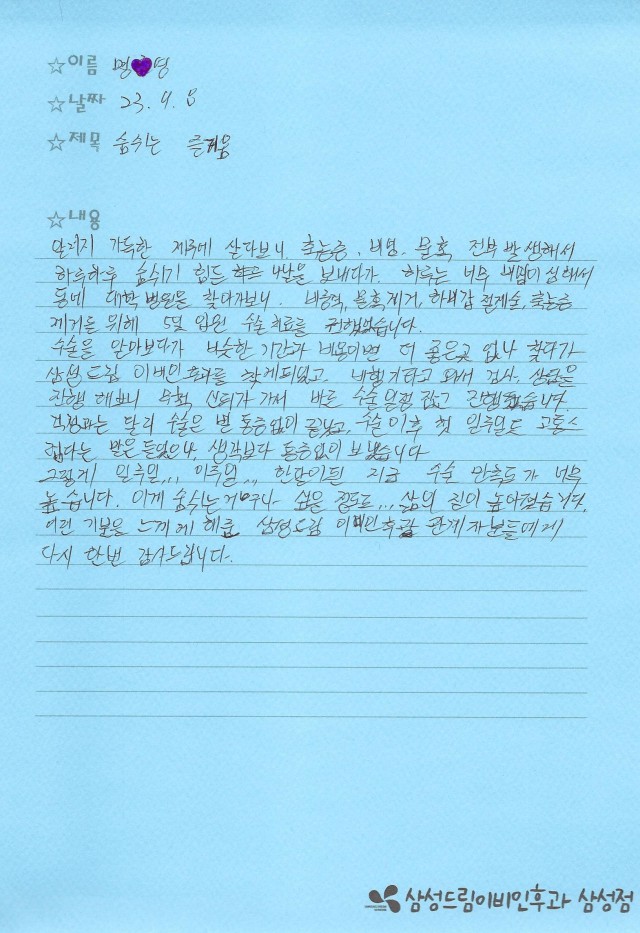 ☆이름 명💜명
☆날짜 23. 9. 8
☆제목 숨쉬는 즐거움
☆내용
알러지 가득한 제주에 살다보니. 축농증, 비염. 물혹. 전부 발생해서
하루하루 숨쉬기 힘든 나날을 보내다가. 하루는 너무 비염이 심해서
동네 대학병원을 찾아가보니. 물혹제거, 하비갑 절제술, 축농증
제거를 위해 5일 입원 수술치료를 권했었습니다.
수술을 알아보다가 비슷한 기간과 비용이면 더 좋은곳 없나 찾다가
삼성드림 이비인후과를 찾게되었고. 비행기타고 와서 검사. 상담을
진행 해보니 무척 신뢰가 가서 바로 수술일정 잡고 진행했습니다.
걱정과는 달리 수술은 별 통증없이 끝났고, 수술 이후 첫 일주일도 고통스
럽다는 말은 들었으나. 생각보다 통증없이 보냈습니다
그렇게 일주일... 이주일... 한달이된 지금 수술 만족도가 너무
높습니다. 이게 숨쉬는거구나 싶은 정도로... 삶의 질이 높아졌습니다.
이런 기분을 느끼게 해준 삼성드림 이비인후과 관계자분들에게
다시 한번 감사드립니다.
삼성드림이비인후과 삼성점